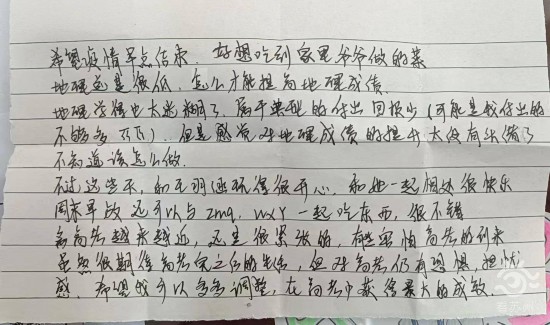 希望疫情早点结束，好想吃到家里爷爷做的菜
地理总是很低，怎么才能提高地理成绩
地理学得也太迷糊了，属于典型的付出回报少（可能是我付出的
不够多 T_T），但是感觉对地理成绩的提升太没有头绪了
不知道该怎么做。
不过这些天，和 羽 玩得很开心，和她一起 很快乐
周末早放还可以与zmq，wxy一起吃东西，很不错
离高考越来越近，还是很紧张的，有些害怕高考的到来
虽然很期待高考完之后的生活，但对高考仍有恐惧、担忧
感，希望我可以多多调整，在高考中获得最大的成效。